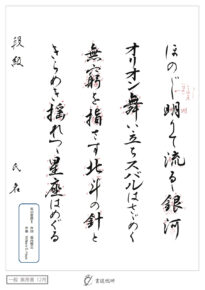 ほのぼの明りて流るゝ銀河
オリオン舞い立ちスバルはさゞめく
無窮を指さす北斗の針と
きらめき揺れつゝ星座はめぐる
段級 氏名